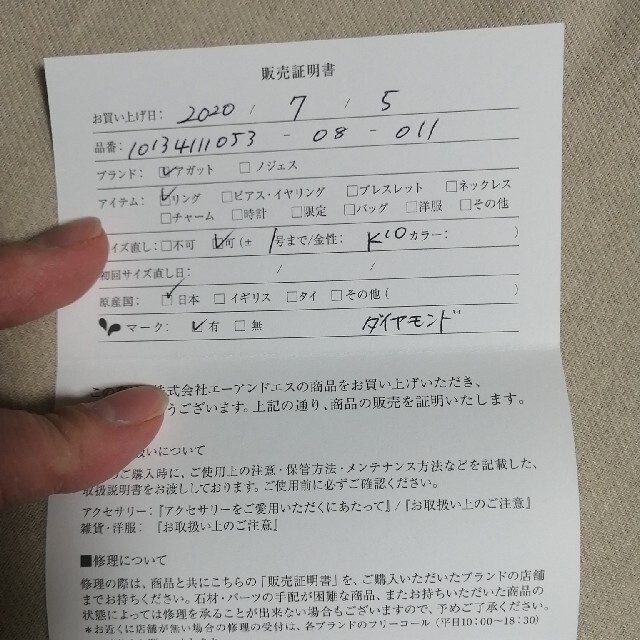 販売証明書
お買い上げ日: 2020 / 7 / 5
品番: 10134111053 - 08 - 011
ブランド: ☑アガット □ノジェス
アイテム: ☑リング □ピアス・イヤリング □ブレスレット □ネックレス
□チャーム □時計 □限定 □バッグ □洋服 □その他
イズ直し: □不可 ☑可(± 1号まで/金性: K10 カラー: )
初回サイズ直し日: / /
原産国: ☑日本 □イギリス □タイ □その他( )
マーク: ☑有 □無 ダイヤモンド
この 株式会社エーアンドエスの商品をお買い上げいただき、
うございます。上記の通り、商品の販売を証明いたします。
扱いについて
のご購入時に、ご使用上の注意・保管方法・メンテナンス方法などを記載した、
取扱説明書をお渡ししております。ご使用前に必ずご確認ください。
アクセサリー:『アクセサリーをご愛用いただくにあたって』/『お取扱い上のご注意』
雑貨・洋服: 『お取扱い上のご注意』
■修理について
修理の際は、商品と共にこちらの「販売証明書」を、ご購入いただいたブランドの店舗
までお持ちください。石材・パーツの手配が困難な商品、またお持ちいただいた商品の
状態によっては修理を承ることが出来ない場合もございますので、予めご了承ください。
*お近くに店舗が無い場合の修理の受付は、各ブランドのフリーコール(平日10:00〜18:30)